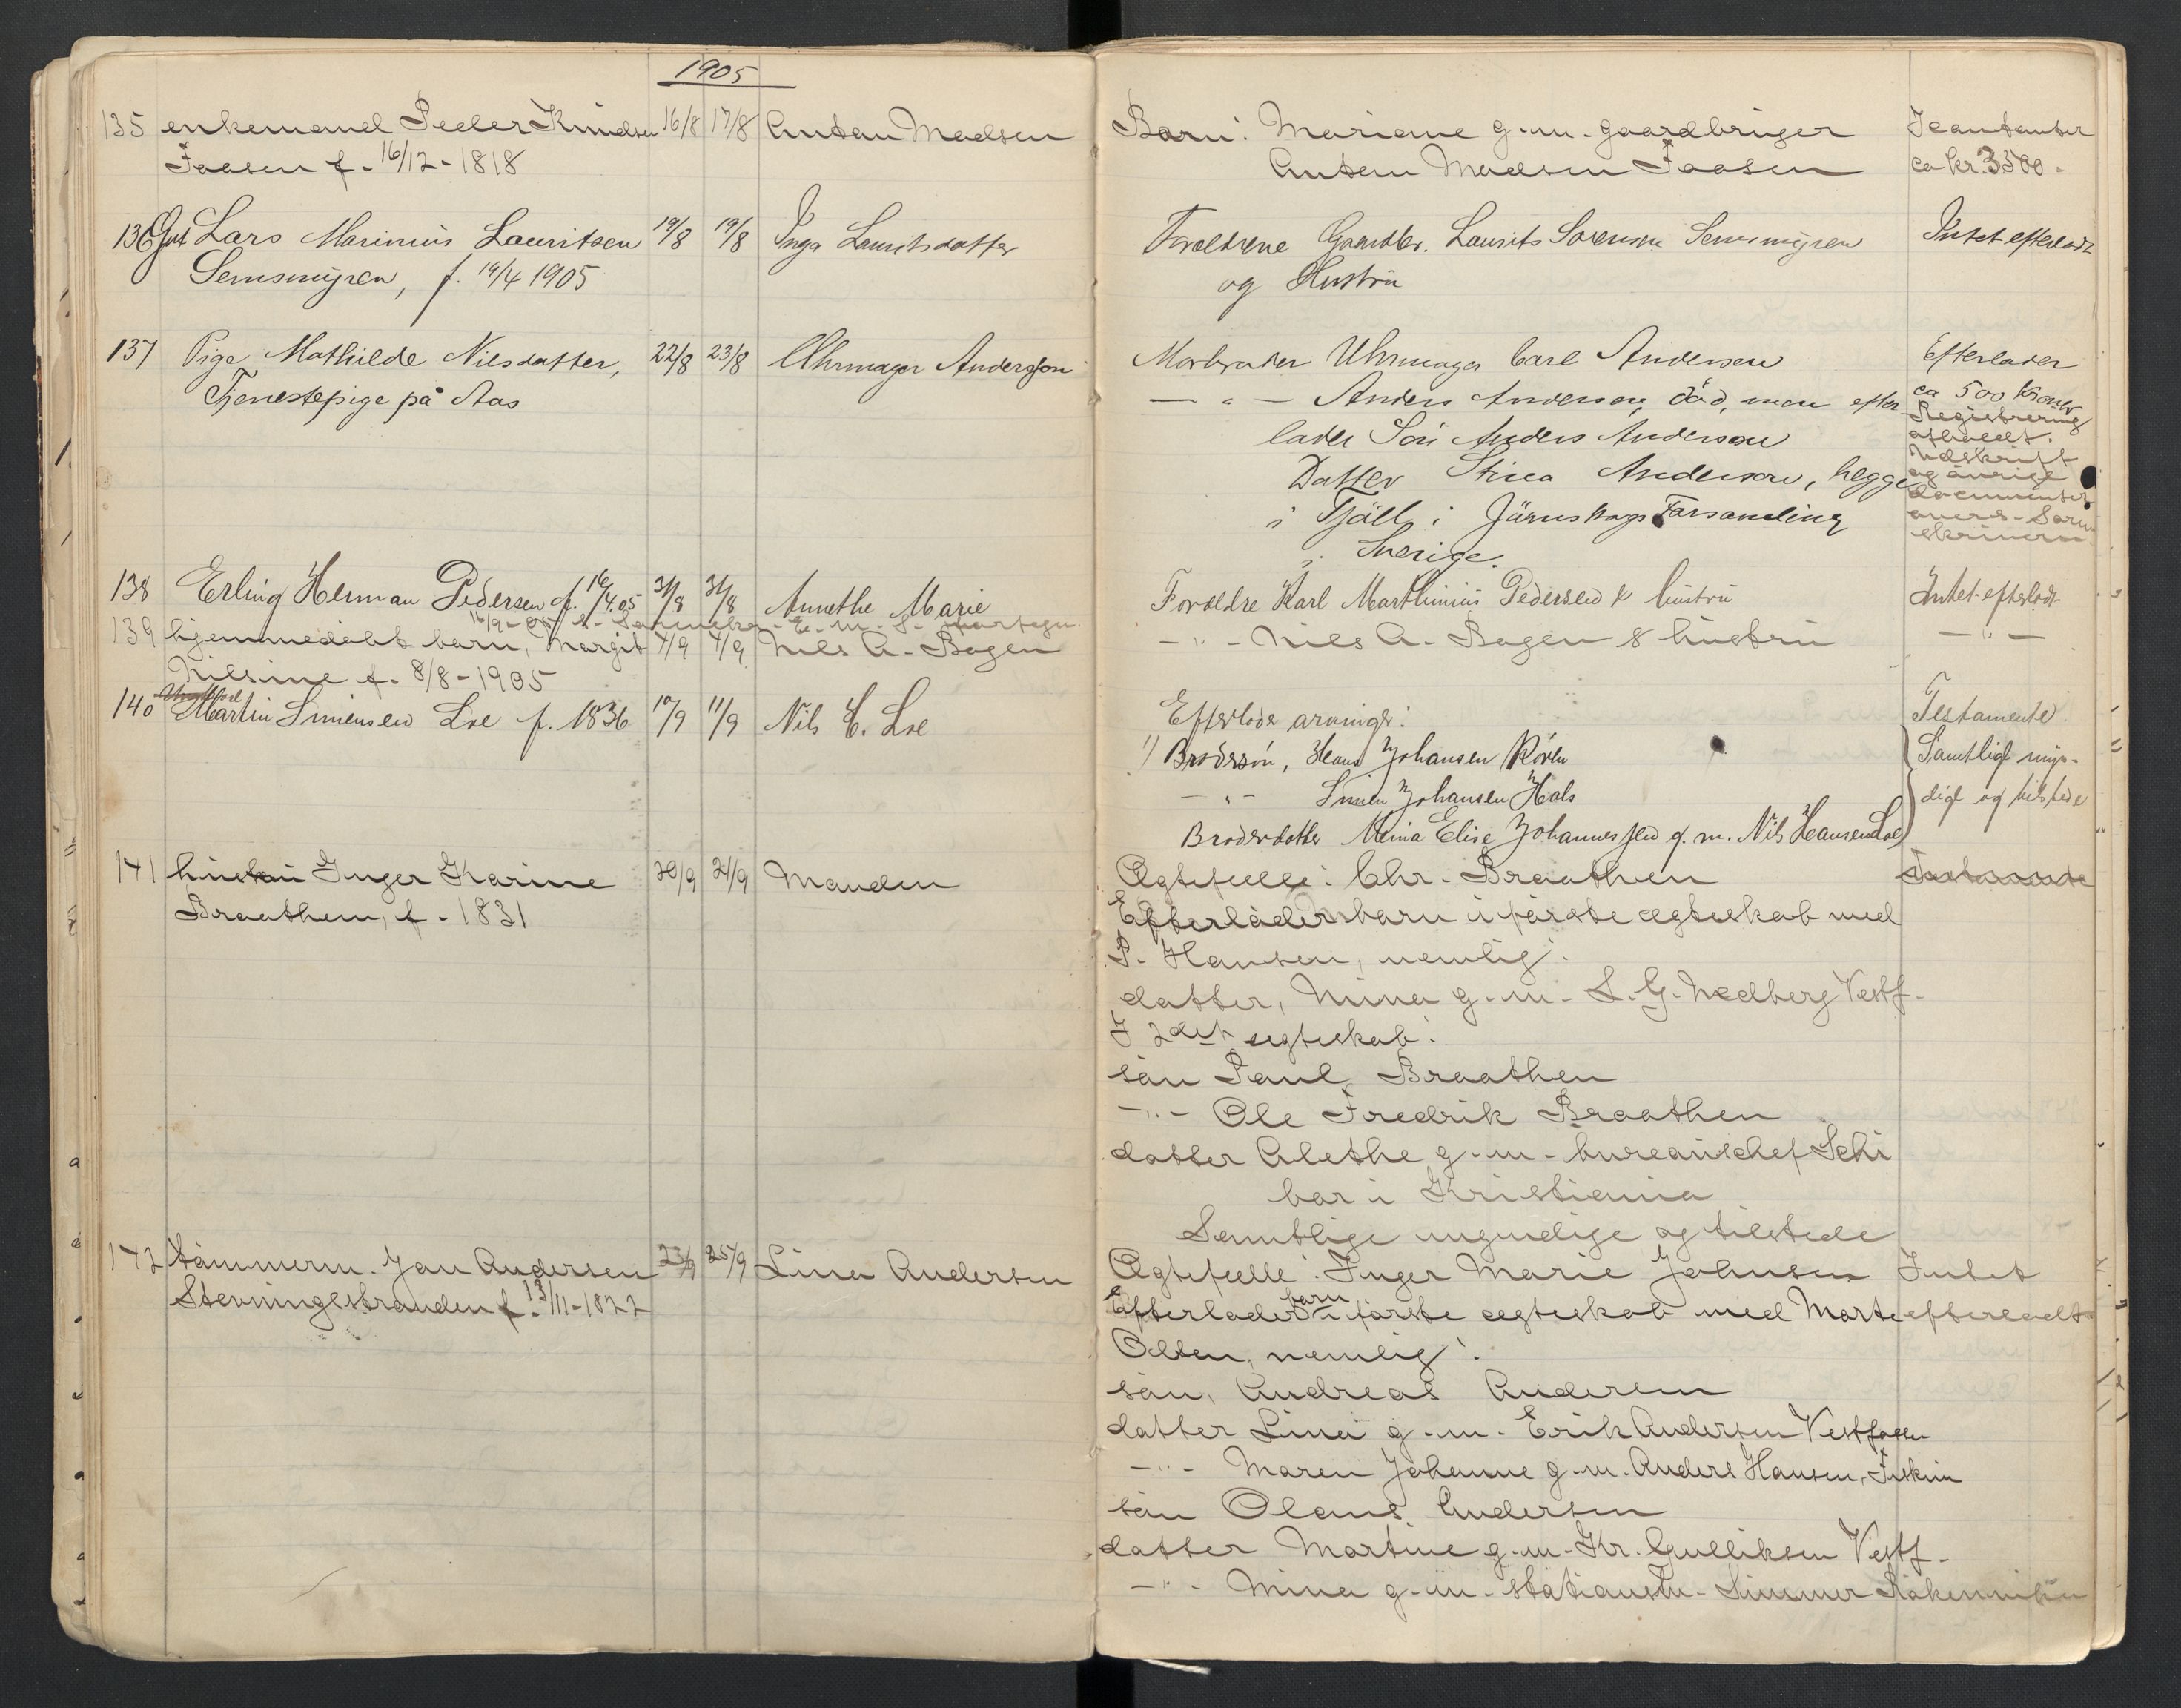 1905
135 enkemand Peder Knudsen 16/8 17/8 Anton Madsen
Faasen f. 16/12-1818
136 Gut Lars Marinius Lauritsen 19/8 19/8 Inga Lauritsdatter
Semsmyren, f. 19/4 1905
137 Pige Mathilde Nilsdatter, 22/8 23/8 Uhrmager Andersson
Tjenestepige på Aas
138 Erling Herman Pedersen f. 16/4.05 31/8 31/8 Annethe Marie
139 hjemmedøbt barn, Margit 7/9 7/9 Nils A. Bagen
Nilsine f. 8/8-1905
140 Ungkarl Martin Simensen Loe f. 1836 10/9 11/9 Nils C. Loe
141 hustru Inger Karine 20/9 21/9 Manden
Braathen, f. 1831
142 tømmerm. Jan Andersen 23/9 25/9 Lina Andersen
Stevningsstranden f. 13/11-1822
Barn: Mariane g.m. gaardbruger
Anton Madsen Faasen
ca kr. 3500.
Forældrene Gaardbr. Laurits Sorensen Semsmyren
og Hustru
Intet efterladt
Morbroder Uhrmager Carl Andersen
— " — Anders Andersen, död, men efter-
lader Søn Anders Andersson
Datter Stina Andersson, begge
i Fjäll i Järnskogs Forsamling
i Sverige.
Efterlader
ca 500 Kroner
Registrering
afholdt.
Udskrift
og øvrige
documenter
Foreldre Karl Marthinius Pedersen & hustru
Intet efterladt
— " — Nils A. Bagen & hustru
— " —
Efterlode arvinger:
Testamente
1) Brodersøn, Hans Johansen
— " — Simen Johansen Hals
Broderdatter Mina Elise Johannessen g. m. Nils Hansen Loe
Samtlige myn-
dige og tilstede
Ægtefælle: Chr. Braathen
Efterlader barn i første ægteskab med
P. Hansen, nemlig:
datter, Mina g.m. S. G. Nedberg Vestf.
I 2det ægteskab:
søn Paul Braathen
— " — Ole Fredrik Braathen
datter Alethe g.m. bureauchef Schi
bør i Kristiania
Samtlige myndige og tilstede
Ægtefælle: Inger Marie Johnsen
Intet
Efterlader barn i første ægteskab med Marte
efterladt
Olsen, nemlig:
søn, Andreas Andersen
datter Lina g.m. Erik Andersen Vestfossen
— " — Maren Johanne g.m. Anders Hansen, Fiskum
søn Olaus Andersen
datter Martine g.m. Kr. Gulliksen Vestf.
— " — Mina g.m. stationsm. Simmer